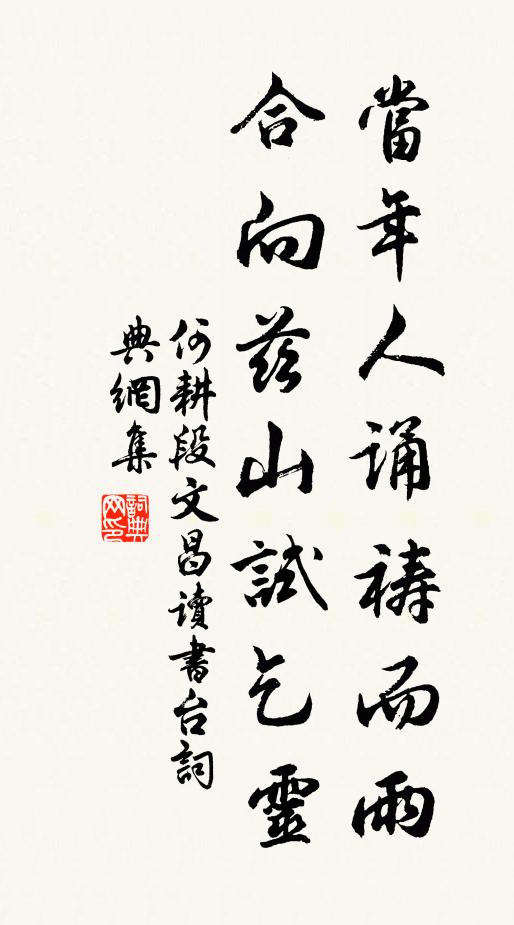 當年人誦禱而雨
合向茲山試乞靈
何耕段文昌讀書台詞
典網集
詞典網印